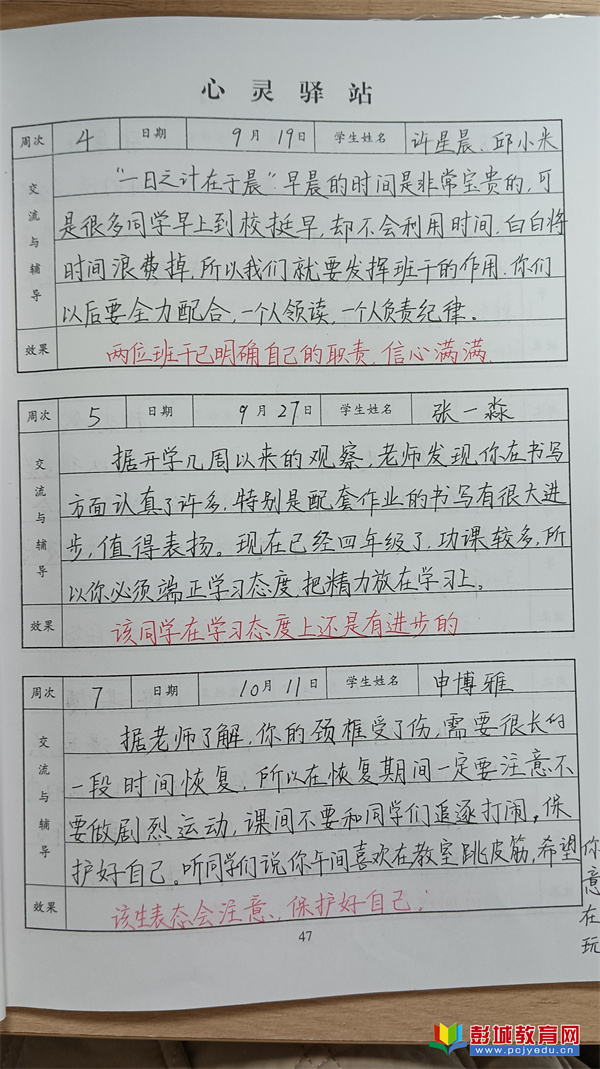 心灵驿站
周次 4 日期 9月19日 学生姓名 许星晨、邱小米
交流与辅导
"一日之计在于晨".早晨的时间是非常宝贵的,可
是很多同学早上到校挺早,却不会利用时间.白白将
时间浪费掉,所以我们就要发挥班干的作用.你们
以后要全力配合,一个人领读,一个人负责纪律。
效果 两位班干已明确自己的职责.信心满满.
周次 5 日期 9月27日 学生姓名 张一淼
交流与辅导
据开学几周以来的观察,老师发现,你在书写
方面认真了许多,特别是配套作业的书写有很大进
步,值得表扬。现在已经四年级了,功课较多,所
以你必须端正学习态度,把精力放在学习上。
效果 该同学在学习态度上还是有进步的
周次 7 日期 10月11日 学生姓名 申博雅
交流与辅导
据老师了解,你的颈椎受了伤,需要很长的
一段时间恢复,所以在恢复期间一定要注意不
要做剧烈运动,课间不要和同学们追逐打闹。保
护好自己。听同学们说你午间喜欢在教室跳皮筋,希望
你
意
在
玩
效果 该生表态会注意、保护好自己.
47
彭城教育网
www.pcjyedu.cn